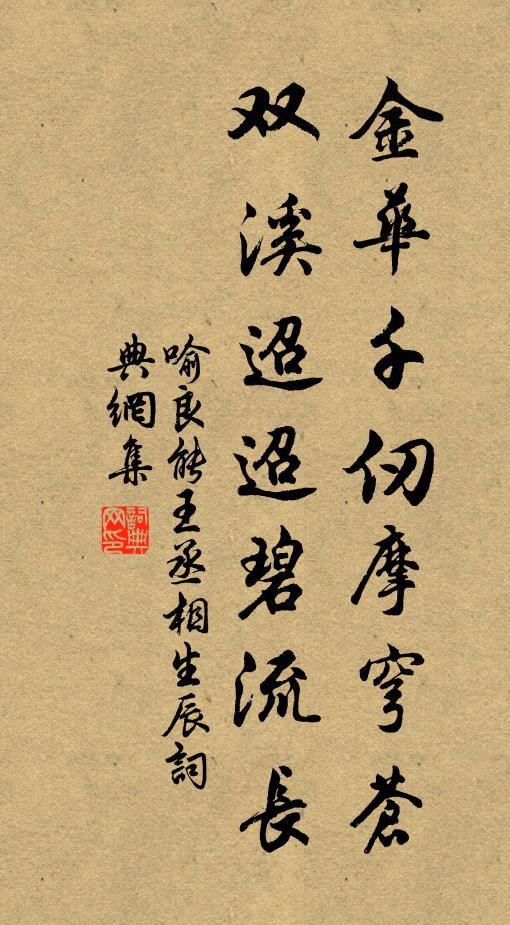 金華千仞摩穹蒼
双溪迢迢碧流長
喻良能王丞相生辰詞
典網集
詞典
网印